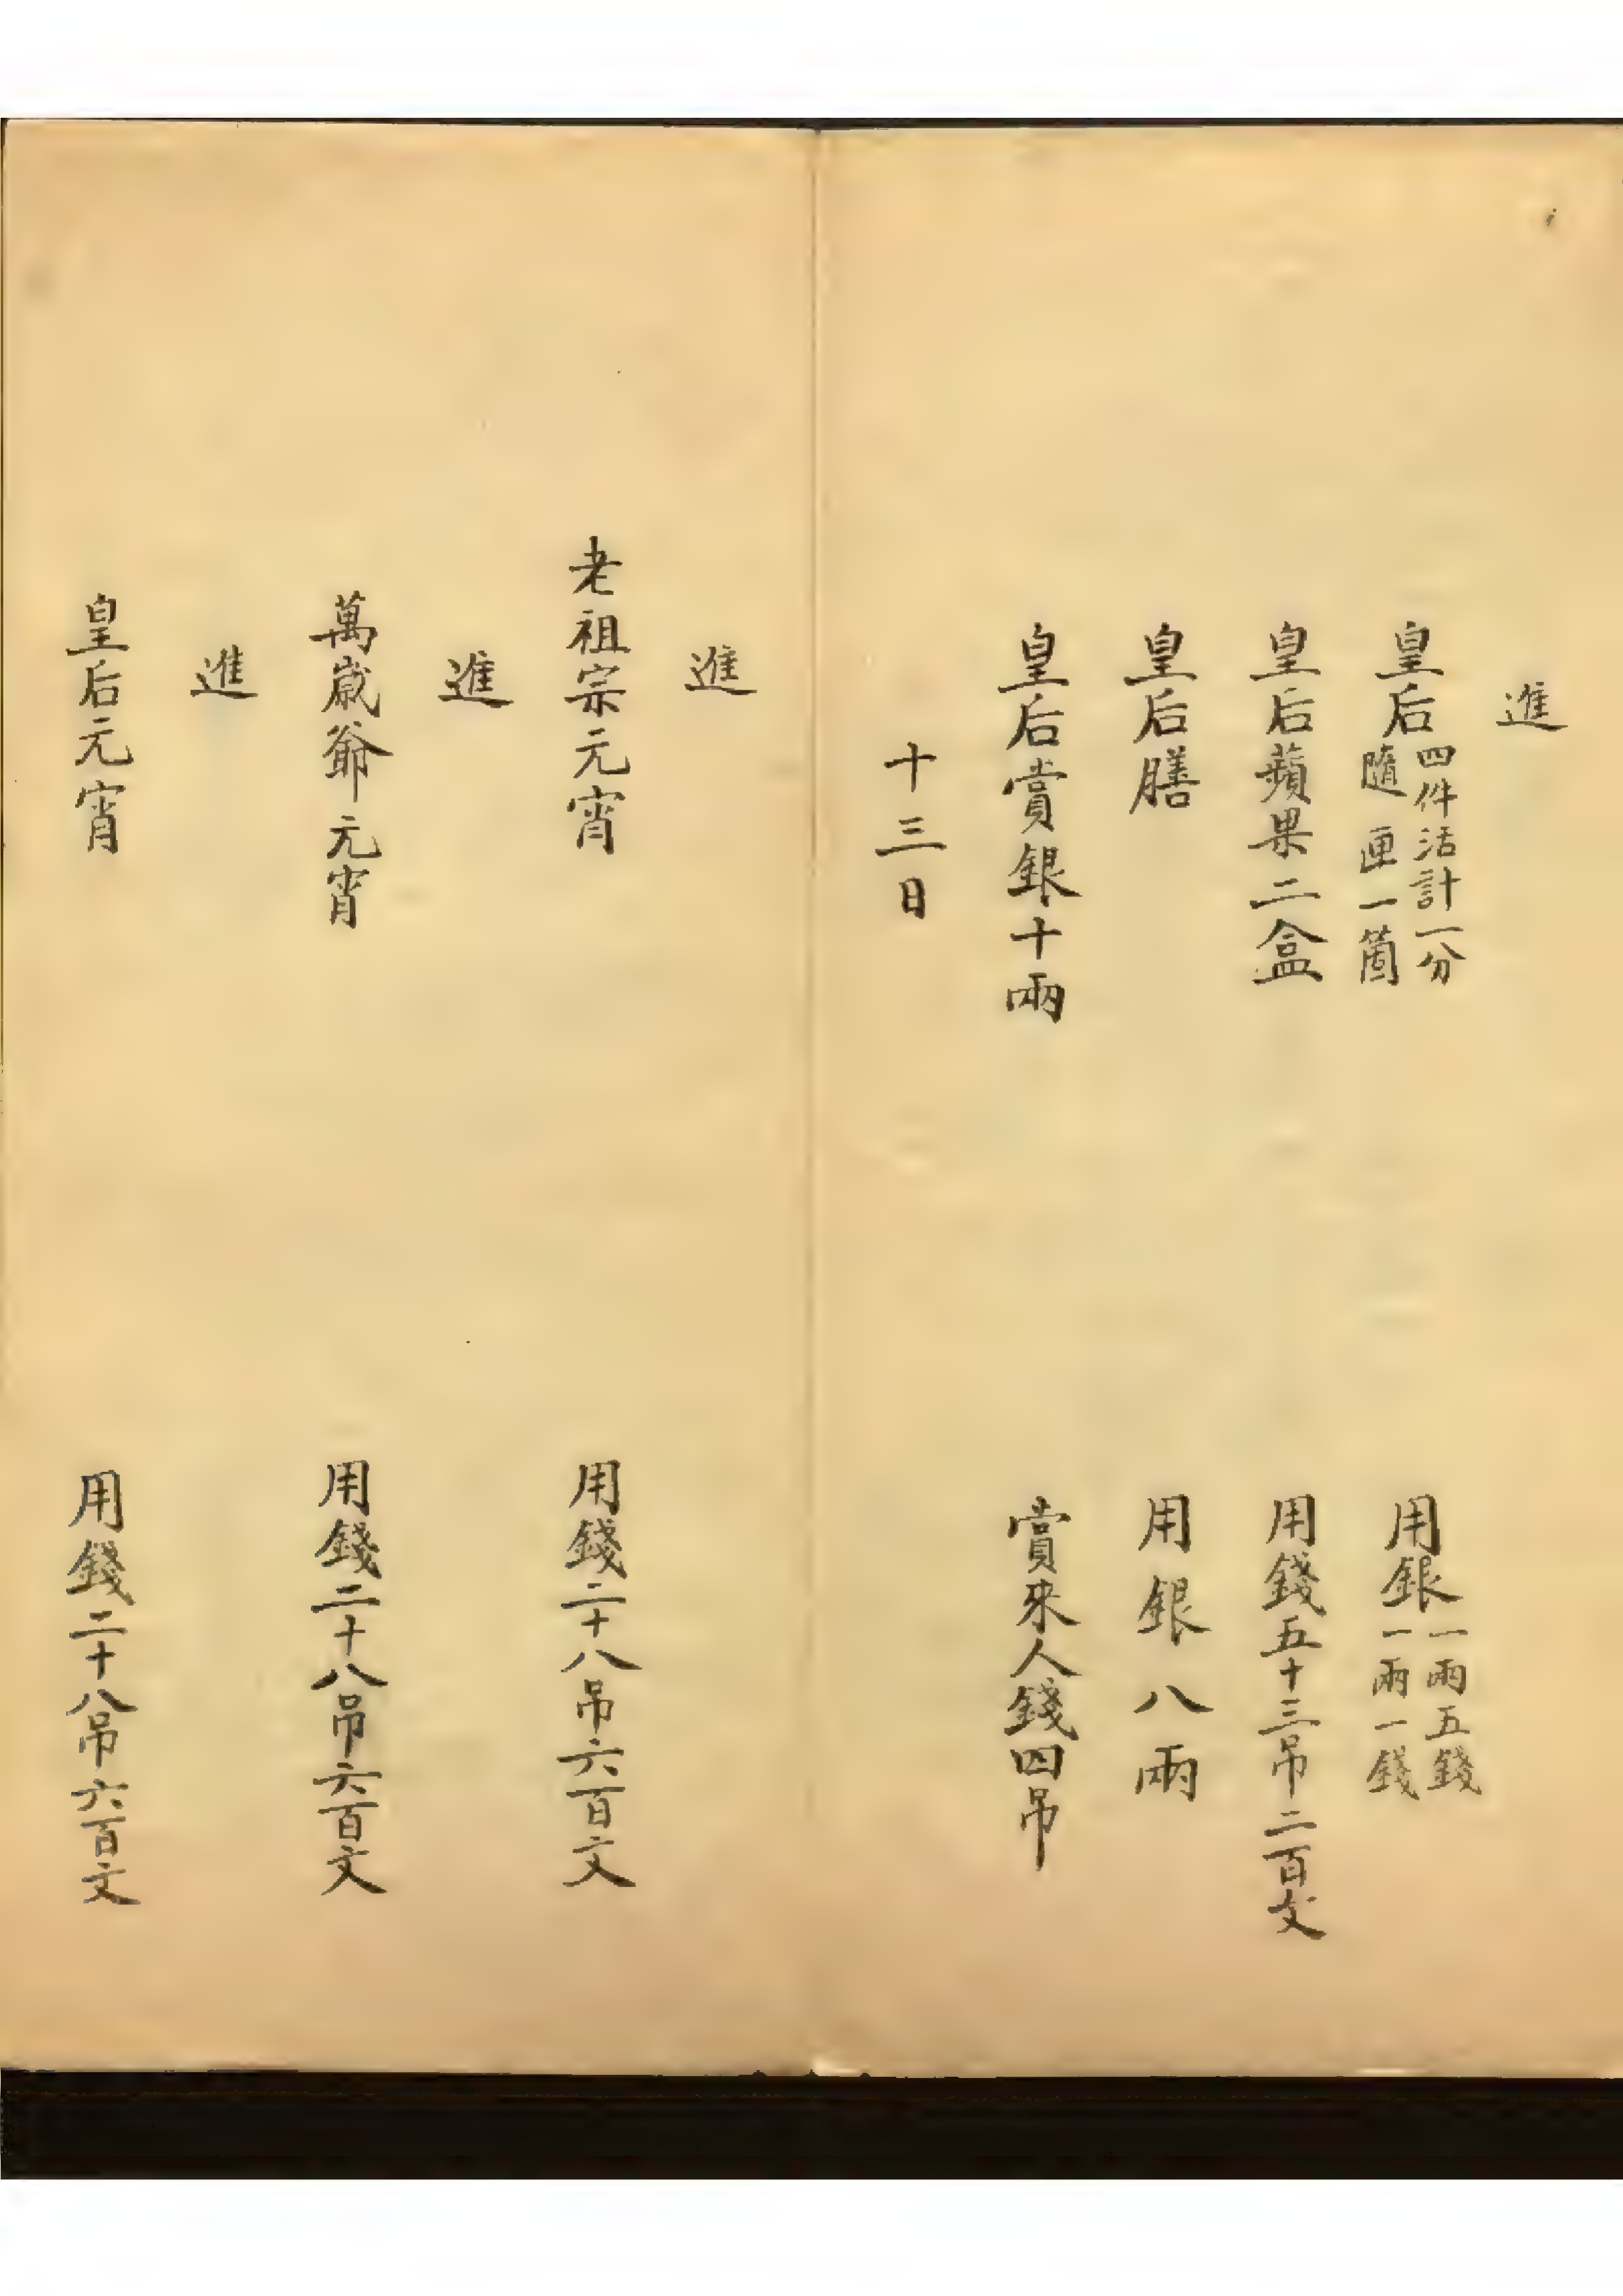 進
皇后四件活計一分隨匣一箇 用銀一兩五錢一兩一錢
皇后蘋果二盒 用錢五十三吊二百文
皇后膳 用銀八兩
皇后賞銀十兩 賞來人錢四吊
十三日
進
老祖宗元宵 用錢二十八吊六百文
進
萬歲爺元宵 用錢二十八吊六百文
進
皇后元宵 用錢二十八吊六百文